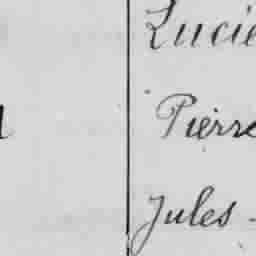 Lucie
Pierre
Jules -